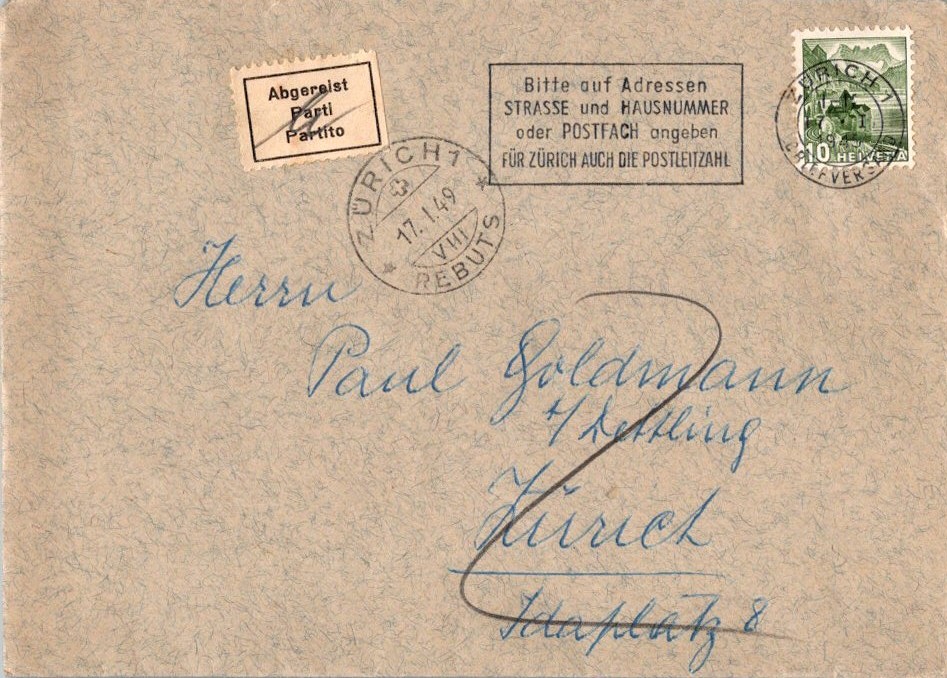 Abgereist
Parti
Partito
ZÜRICH 1
17. I. 49
VIII
REBUTS
Bitte auf Adressen
STRASSE und HAUSNUMMER
oder POSTFACH angeben
FÜR ZÜRICH AUCH DIE POSTLEITZAHL
ZÜRICH 1
BRIEFVERSAND
10 HELVETIA
Herrn
Paul Goldmann
b/ Dettling
Zürich
Idaplatz 8